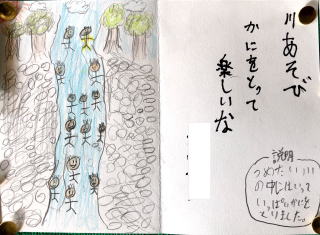 川あそび
かにをとって
楽しいな
説明
つめたい川
の中にはいって
いっぱいかにを
とりました。